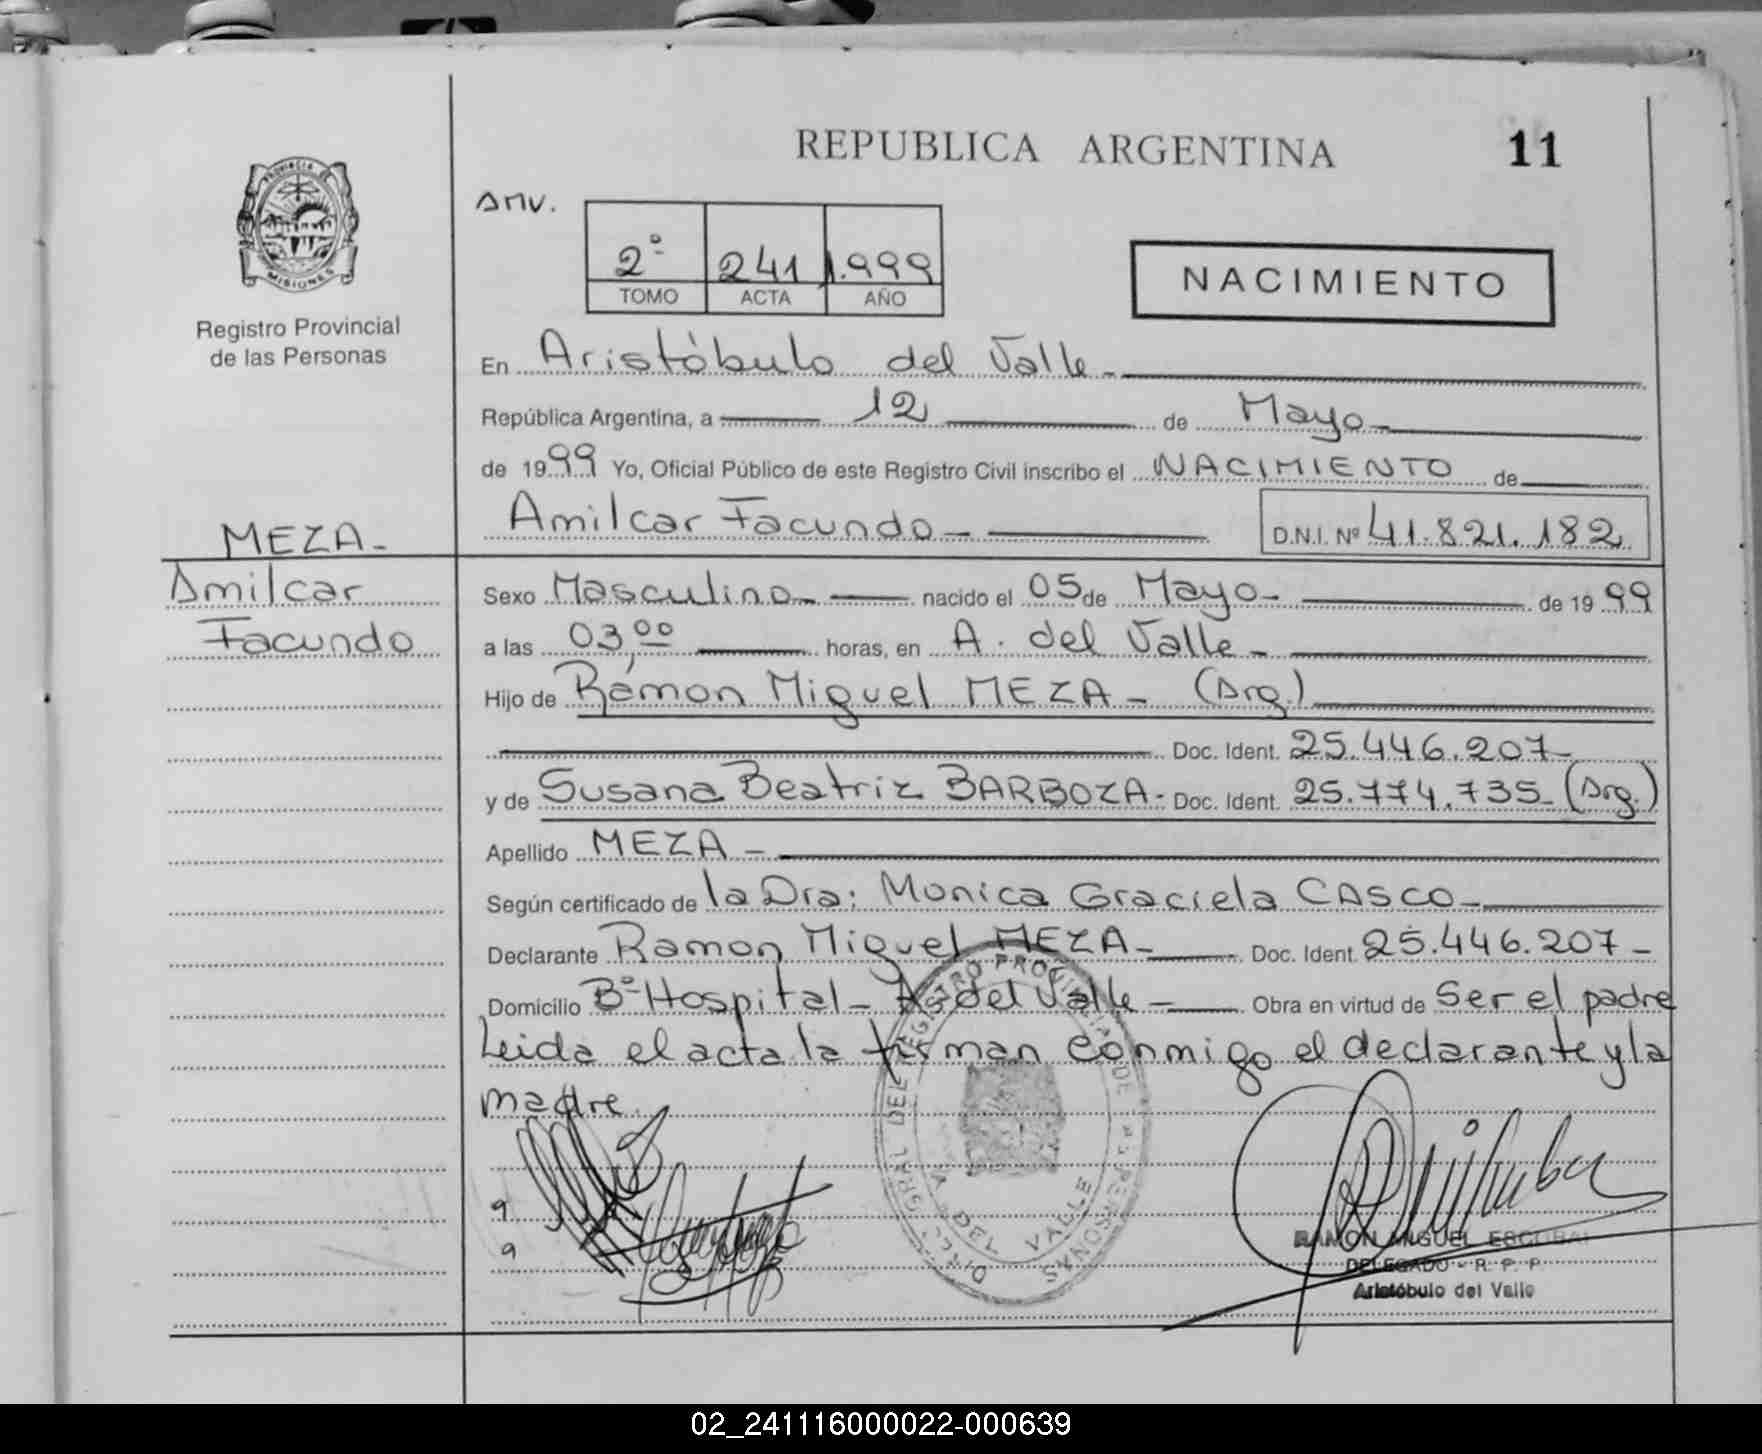 REPUBLICA ARGENTINA 11
PROVINCIA DE
MISIONES
Registro Provincial
de las Personas
AMV.
2º 241 1.999
TOMO ACTA AÑO
NACIMIENTO
En Aristóbulo del Valle -
República Argentina, a 12 de Mayo -
de 1999 Yo, Oficial Público de este Registro Civil inscribo el NACIMIENTO de
Amilcar Facundo - D.N.I. Nº 41.821.182
MEZA -
Amilcar
Facundo
Sexo Masculino - nacido el 05 de Mayo - de 1999
a las 03,00 horas, en A. del Valle -
Hijo de Ramon Miguel MEZA - (Arg.)
Doc. Ident. 25.446.207 -
y de Susana Beatriz BARBOZA - Doc. Ident. 25.774.735 - (Arg.)
Apellido MEZA -
Según certificado de la Dra: Monica Graciela CASCO -
Declarante Ramon Miguel MEZA - Doc. Ident. 25.446.207 -
Domicilio Bº Hospital - A. del Valle - Obra en virtud de Ser el padre
Leida el acta la firman conmigo el declarante y la
madre.
DIR. GRAL DEL REGISTRO PROVINCIAL DE PERSONAS
A. DEL VALLE
RAMON ANGUEL ESCOBAR
DELEGADO - R. P. P.
Aristóbulo del Valle
02_241116000022-000639